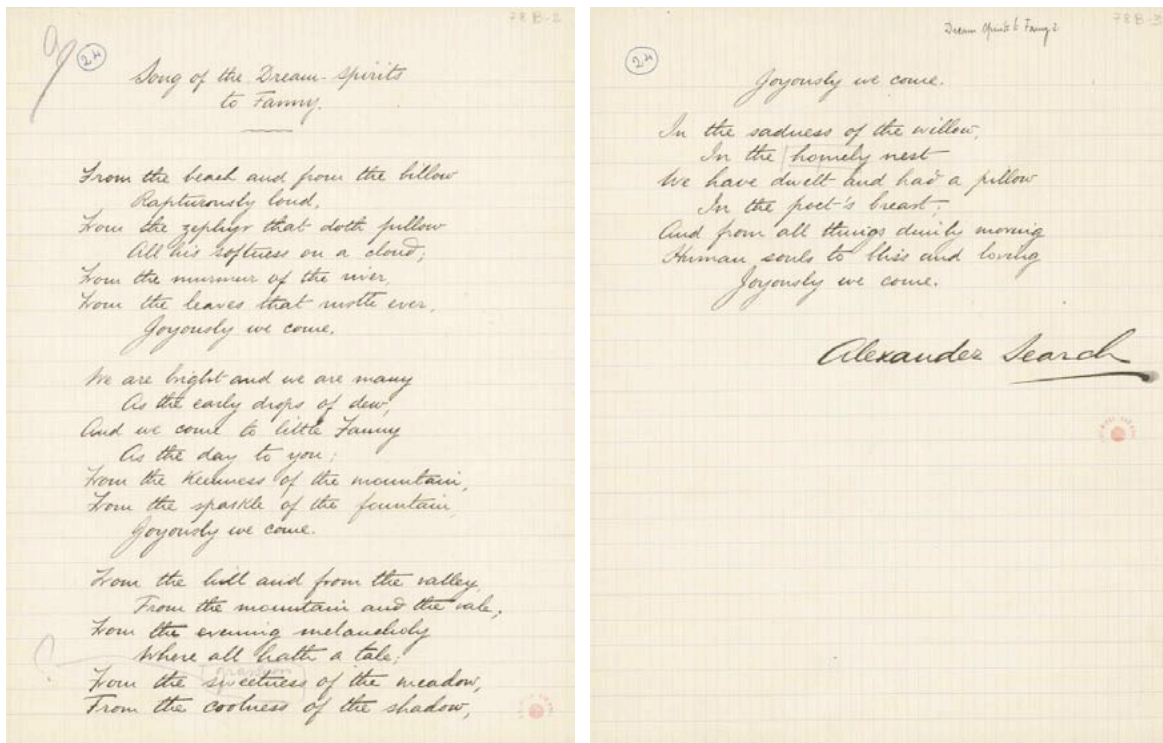 78B-2
24
Song of the Dream-Spirits
to Fanny.
From the beach and from the billow
Rapturously loud,
From the zephyr that doth pillow
All his softness on a cloud;
From the murmur of the river,
From the leaves that rustle ever,
Joyously we come.
We are bright and we are many
As the early drops of dew,
And we come to little Fanny
As the day to you;
From the keenness of the mountain,
From the sparkle of the fountain,
Joyously we come.
From the hill and from the valley,
From the mountain and the vale;
From the evening melancholy
Where all hath a tale;
From the sweetness of the meadow,
From the coolness of the shadow,
78B-3
Dream Spirits to Fanny 2
24
Joyously we come.
In the sadness of the willow,
In the homely nest
We have dwelt and had a pillow
In the poet's breast;
And from all things dimly moving
Human souls to bliss and loving
Joyously we come.
Alexander Search